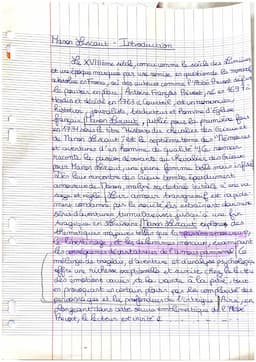 Manon Lescaut - Introduction
Le XVIIIème siècle, connu comme le siècle des Lumières
est une époque marquée par une remise en question de la morale
absolue en France, où des auteurs comme l'Abbé Prévost défient
le pouvoir en place. Antoine François Prévost, né en 1697 à
Hesdin et décédé en 1763 à Courteuil, est un romancier,
historien, journaliste, traducteur et homme d'Église
français. Manon Lescaut, publié pour la première fois
en 1731 sous le titre "Histoire du chevalier des Grieux et
de Manon Lescaut" est le septième tome des "Mémoires
et aventures d'un homme de qualité". Ce roman
raconte la passion dévorante du Chevalier des Grieux
pour Manon Lescaut, une jeune femme belle mais
Dès leur rencontre des Grieux tombe éperdument
amoureux de Manon, malgré
sage et réglé. Leur amour transgressif est rapide-
ment condamné par la société les entraînant dans une
série d'aventures tumultueuses jusqu'à une fin
tragique en Louisiane. Manon Lescaut explore des
thématiques majeures telles que la passion amoureuse,
le libertinage, et les dilemmes moraux, examinant
les conséquences dévastatrices de l'amour passionnel. Ce
mélange de tragédie, d'aventure et d'analyse psychologique
offre une richesse exceptionnelle et suscite chez le lecteur
des émotions vives de la pitié, tout
en provoquant un certain plaisir par la complexité des
personnages et la profondeur de l'intrigue. Ainsi, en
plongeant dans cette œuvre emblématique de l'Abbé
Prévost, le lecteur est invité à